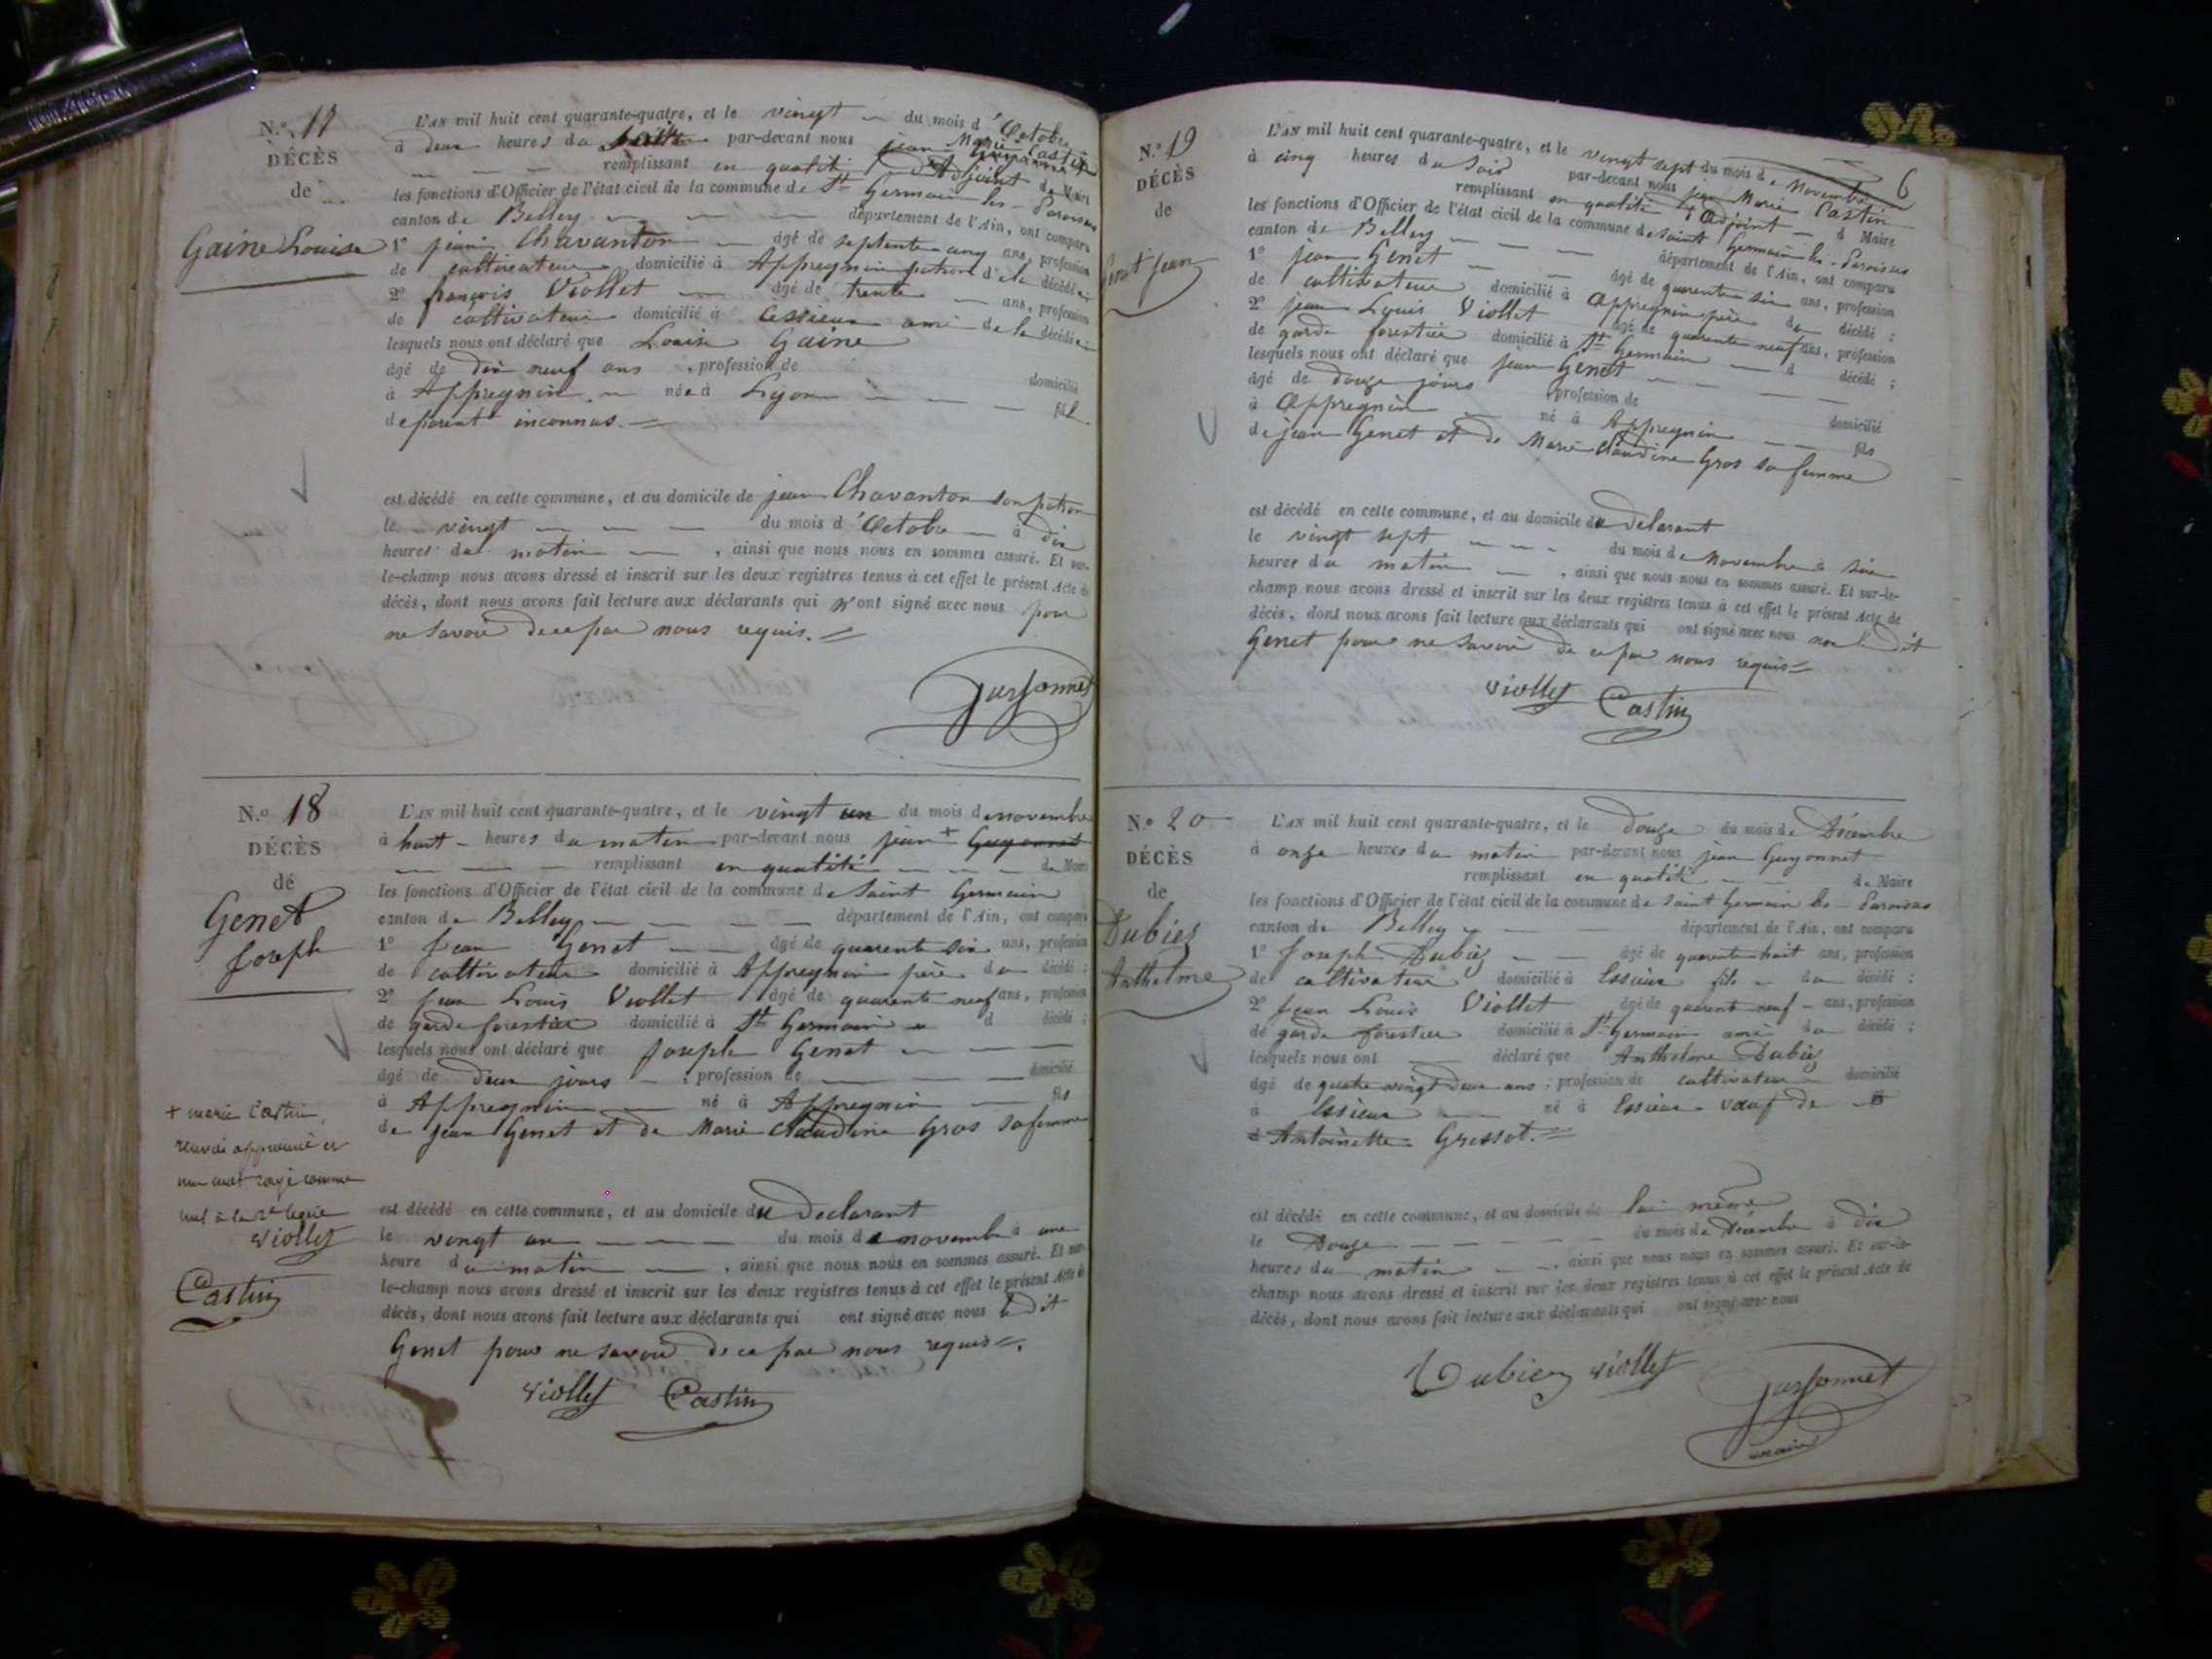 N.° 17
DÉCÈS
de
Gaine Louise
L'AN mil huit cent quarante-quatre, et le vingt du mois d'Octobre
à deux heures du par-devant nous jean Marie Castin
remplissant en qualité d'Adjoint de Maire
les fonctions d'Officier de l'état civil de la commune de St Germain les Paroisses
canton de Belley département de l'Ain, ont comparu
1° jean Chavanton âgé de septente cinq ans, profession
de cultivateur domicilié à Appregnin patron d'ela décédée
2° françois Viollet âgé de trente ans, profession
de cultivateur domicilié à Cessieux ami de la décédée
lesquels nous ont déclaré que Louise Gaine
âgé de dix neuf ans , profession de domicilié
à Appregnin née à Lyon fil
de parent inconnus.
est décédé en cette commune, et au domicile de jean Chavanton son patron
le vingt du mois d'Octobre à dix
heures du matin , ainsi que nous nous en sommes assuré. Et sur-
le-champ nous avons dressé et inscrit sur les deux registres tenus à cet effet le présent Acte de
décès, dont nous avons fait lecture aux déclarants qui n'ont signé avec nous pour
ne savoir de ce par nous requis.
N.° 18
DÉCÈS
de
Genet
Joseph
L'AN mil huit cent quarante-quatre, et le vingt un du mois de novembre
à huit heures du matin par-devant nous jean + Guyonnet
remplissant en qualité de Maire
les fonctions d'Officier de l'état civil de la commune de Saint Germain
canton de Belley département de l'Ain, ont comparu
1° Jean Genet âgé de quarente six ans, profession
de cultivateur domicilié à Appregnin père du décédé ;
2° Jean Louis Viollet âgé de quarente neuf ans, profession
de garde forestier domicilié à St Germain d décédé ;
lesquels nous ont déclaré que Joseph Genet
âgé de deux jours ; profession de domicilié
à Appregnin né à Appregnin fils
de Jean Genet et de Marie Claudine Gros sa femme
+ marie Castin,
renvoi approuvé et
un mot rayé comme
nul à la 2e ligne
viollet
Castin
est décédé en cette commune, et au domicile du Declarant
le vingt un du mois de novembre à une
heure du matin , ainsi que nous nous en sommes assuré. Et sur-
le-champ nous avons dressé et inscrit sur les deux registres tenus à cet effet le présent Acte de
décès, dont nous avons fait lecture aux déclarants qui ont signé avec nous le dit
Genet pour ne savoir de ce par nous requis.
viollet Castin
6
N.° 19
DÉCÈS
de
Genet Jean
L'AN mil huit cent quarante-quatre, et le vingt sept du mois de Novembre
à cinq heures du soir par-devant nous jean Marie Castin
remplissant en qualité d'Adjoint d Maire
les fonctions d'Officier de l'état civil de la commune de Saint Germain les Paroisses
canton de Belley département de l'Ain, ont comparu
1° jean Genet âgé de quarente six ans, profession
de cultivateur domicilié à Appregnin père du décédé ;
2° jean Louis Viollet âgé de quarente neuf ans, profession
de garde forestier domicilié à St Germain d décédé ;
lesquels nous ont déclaré que jean Genet
âgé de douze jours profession de domicilié
à Appregnin né à Appregnin fils
de jean Genet et de Marie Claudine Gros sa femme
est décédé en cette commune, et au domicile du Delarant
le vingt sept du mois de Novembre à six
heures du matin , ainsi que nous nous en sommes assuré. Et sur-le-
champ nous avons dressé et inscrit sur les deux registres tenus à cet effet le présent Acte de
décès, dont nous avons fait lecture aux déclarants qui ont signé avec nous non le dit
Genet pour ne savoir de ce par nous requis
viollet Castin
N.° 20
DÉCÈS
de
Dubiez
Anthelme
L'AN mil huit cent quarante-quatre, et le Douze du mois de Décembre
à onze heures du matin par-devant nous jean Guyonnet
remplissant en qualité de Maire
les fonctions d'Officier de l'état civil de la commune de Saint Germain les Paroisses
canton de Belley département de l'Ain, ont comparu
1° Joseph Dubiez âgé de quarente huit ans, profession
de cultivateur domicilié à Essieux fils du décédé ;
2° Jean Louis Viollet âgé de quarente neuf ans, profession
de garde forestier domicilié à St Germain ami du décédé ;
lesquels nous ont déclaré que Anthelme Dubiez
âgé de quatre vingt deux ans ; profession de cultivateur domicilié
à Essieux né à Essieux veuf de
Antoinette Gressot.
est décédé en cette commune, et au domicile de lui même
le Douze du mois de Décembre à dix
heures du matin , ainsi que nous nous en sommes assuré. Et sur-le-
champ nous avons dressé et inscrit sur les deux registres tenus à cet effet le présent Acte de
décès, dont nous avons fait lecture aux déclarants qui ont signé avec nous
Dubiez viollet
maire